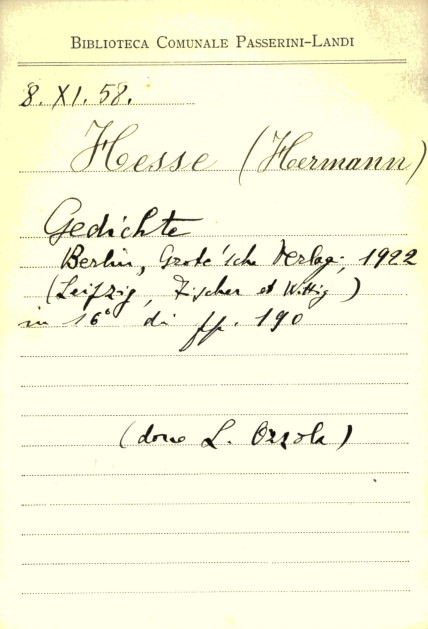 BIBLIOTECA COMUNALE PASSERINI-LANDI
8. XI. 58.
Hesse (Hermann)
Gedichte
Berlin, Grote'sche Verlag, 1922
(Leipzig, Fischer et Wittig)
in 16° di pp. 190
(dono L. Ozzola)